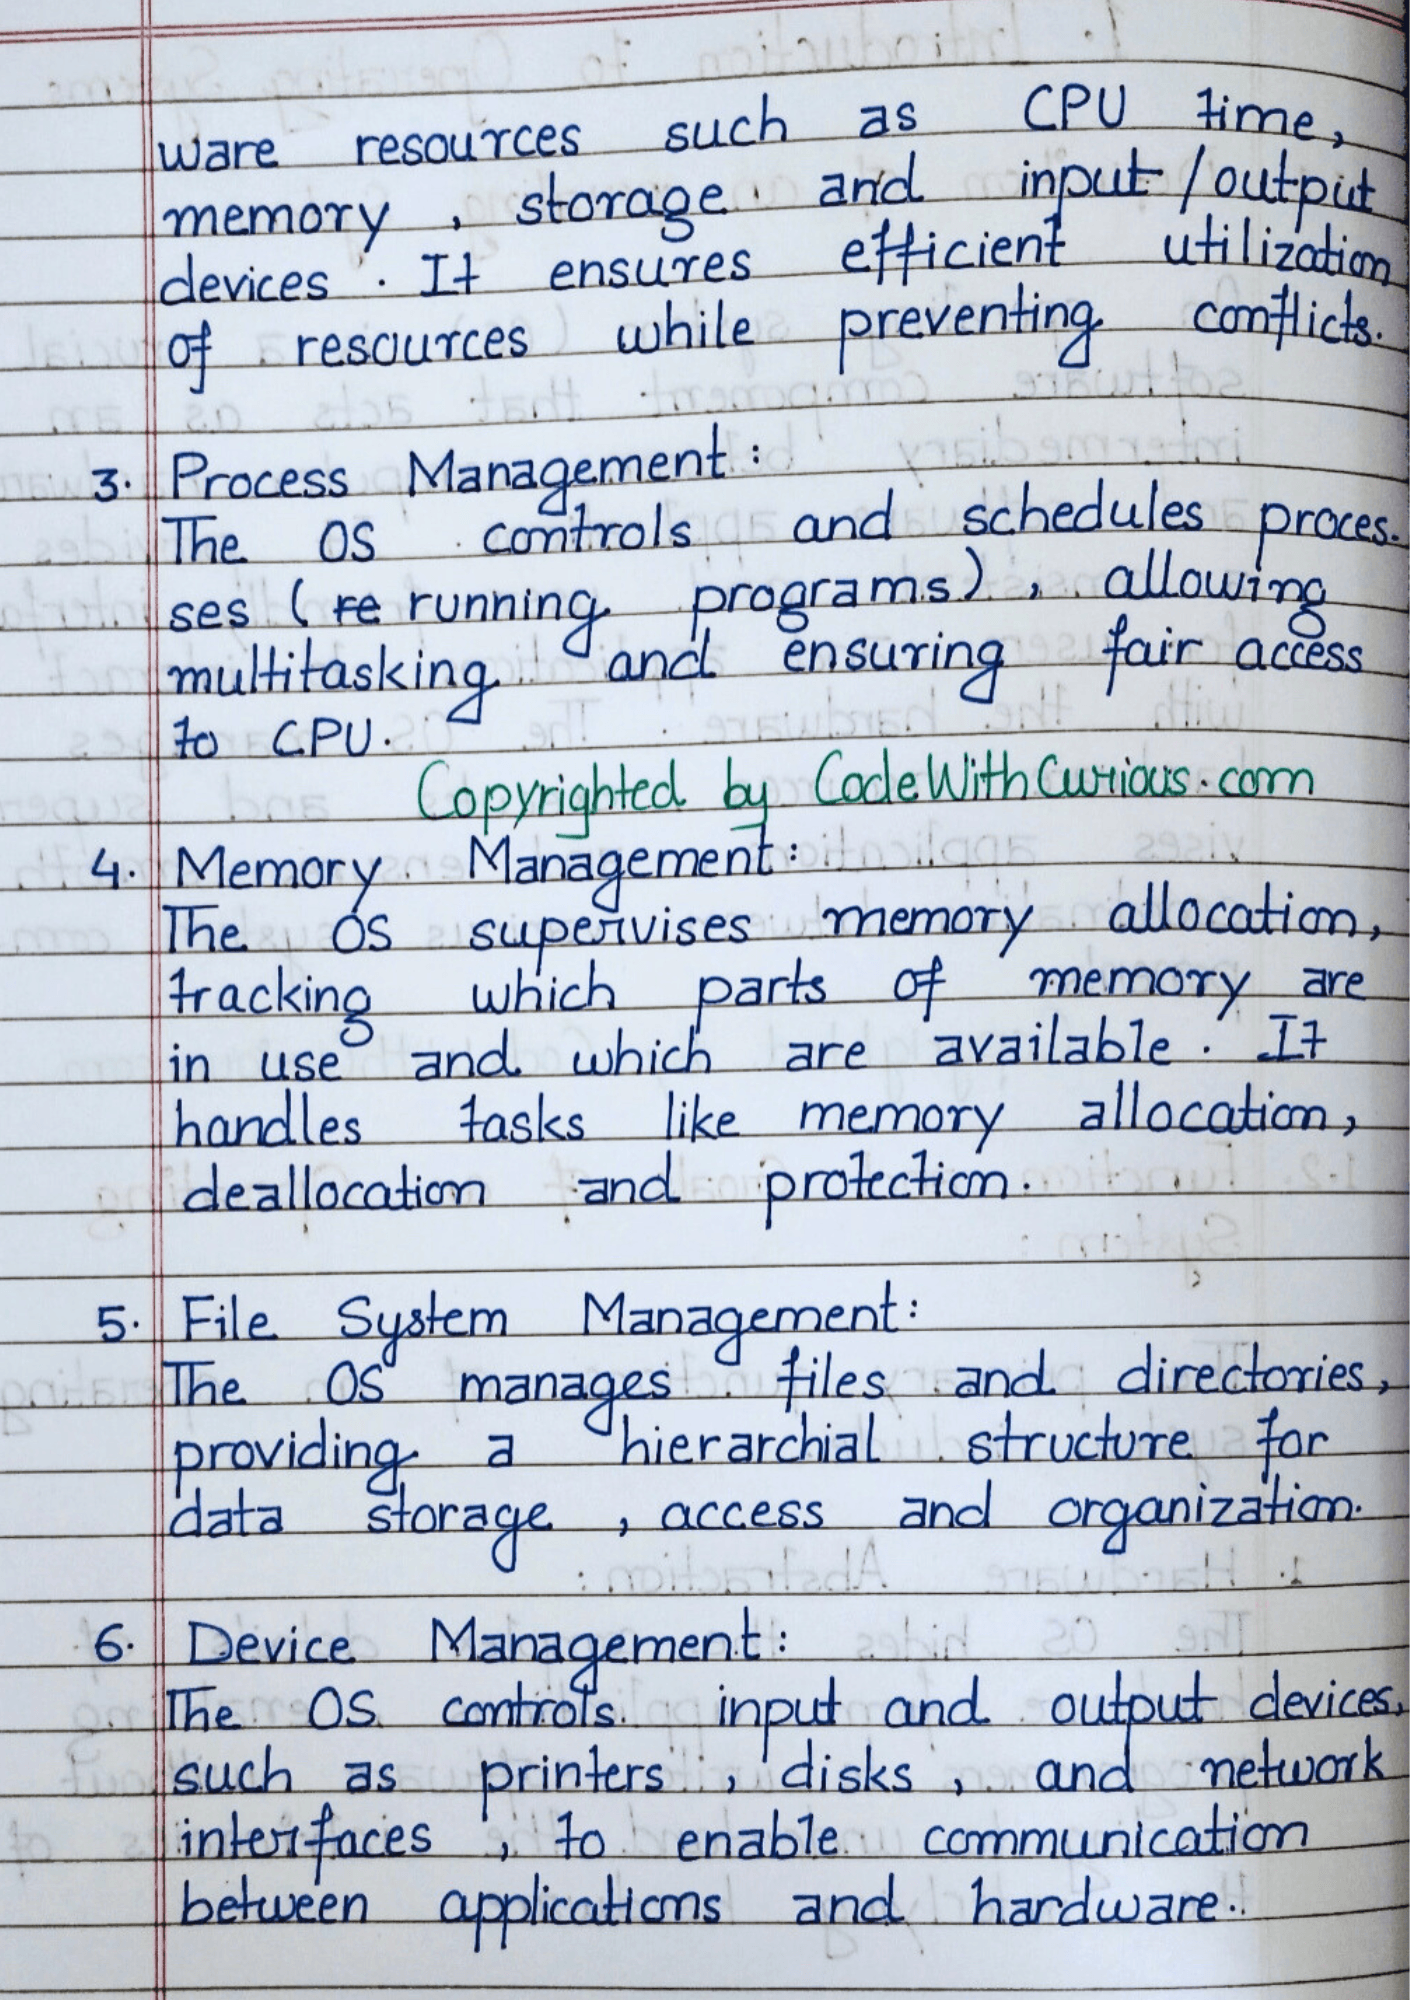 ware resources such as CPU time,
memory , storage and input/output
devices . It ensures efficient utilization
of resources while preventing conflicts.
3. Process Management:
The OS controls and schedules proces-
ses (re running programs) , allowing
multitasking and ensuring fair access
to CPU.
Copyrighted by CodeWithCurious.com
4. Memory Management:
The OS supervises memory allocation,
tracking which parts of memory are
in use and which are available . It
handles tasks like memory allocation,
deallocation and protection.
5. File System Management:
The OS manages files and directories,
providing a hierarchial structure for
data storage , access and organization.
6. Device Management:
The OS controls input and output devices,
such as printers , disks , and network
interfaces , to enable communication
between applications and hardware.